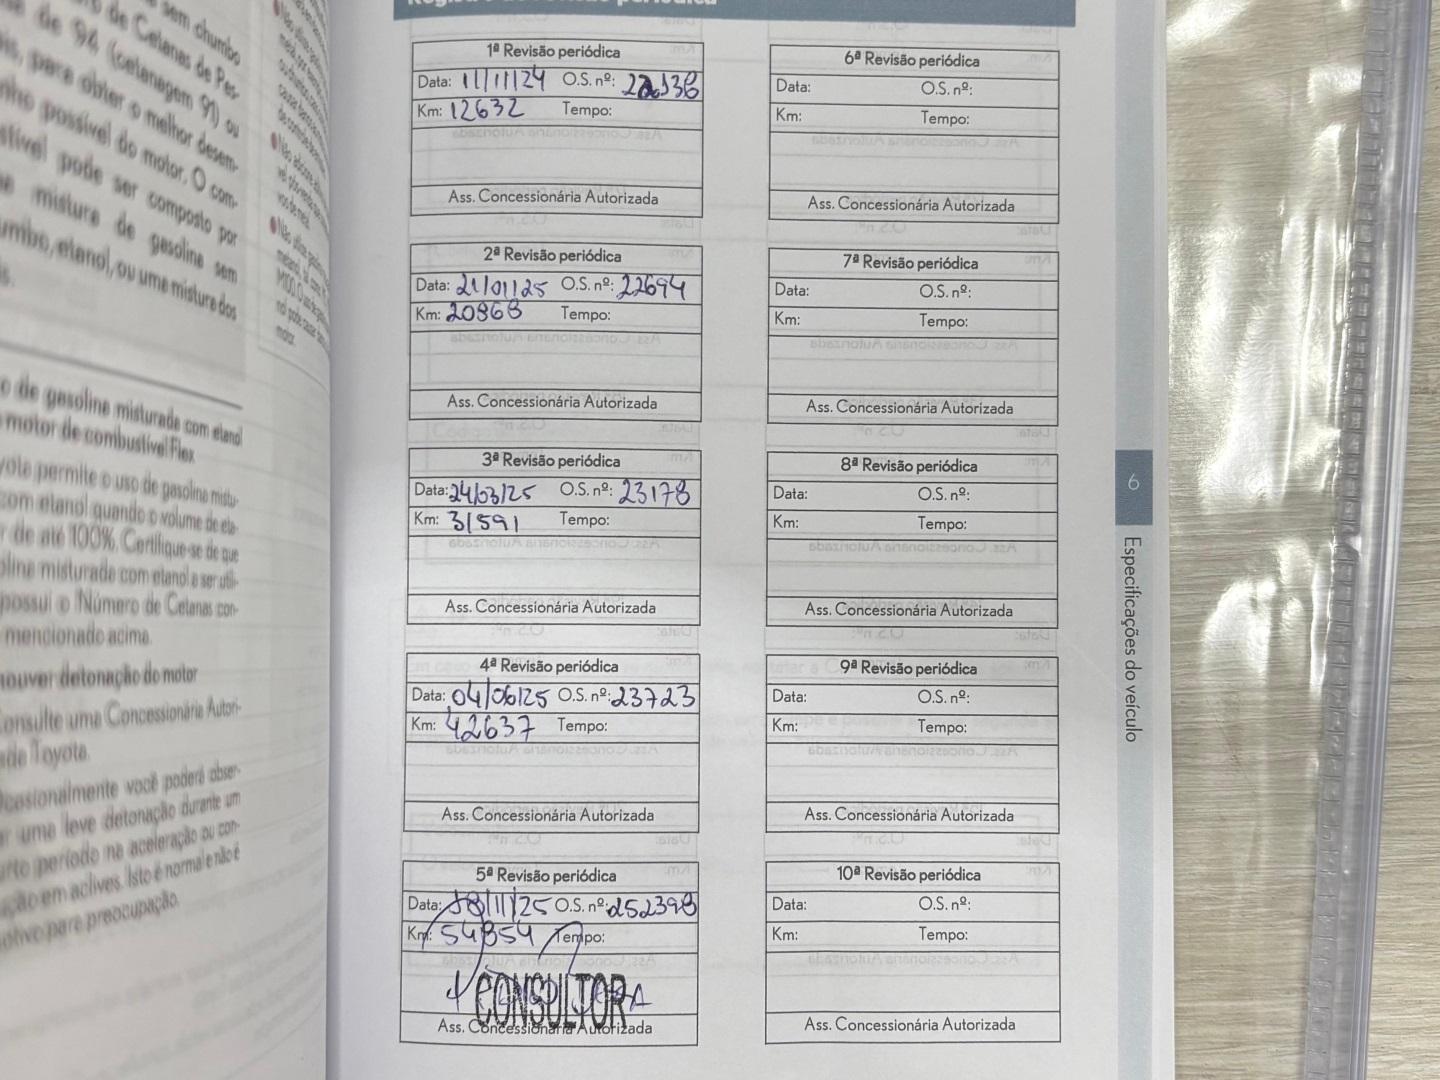 sem chumbo
de Cetanas de Pes-
de 94 (cetanagem 91) ou
para obter o melhor desem-
possível do motor. O com-
pode ser composto por
mistura de gasolina sem
etanol, ou uma mistura dos
de gasolina misturada com etanol
motor de combustível Flex
permite o uso de gasolina mistu-
com etanol quando o volume de eta-
de até 100%. Certifique-se de que
misturada com etanol a ser utili-
possui o Número de Cetanas con-
mencionado acima.
houver detonação do motor
Consulte uma Concessionária Autori-
Toyota.
Ocasionalmente você poderá obser-
uma leve detonação durante um
período na aceleração ou con-
em aclives. Isto é normal e não é
motivo para preocupação.
1ª Revisão periódica
Data: 11/11/24 O.S. nº:
Km: 12632 Tempo:
Ass. Concessionária Autorizada
2ª Revisão periódica
Data: 21/01/25 O.S. nº: 22694
Km: 20868 Tempo:
Ass. Concessionária Autorizada
3ª Revisão periódica
Data: 24/03/25 O.S. nº: 23178
Km: 31591 Tempo:
Ass. Concessionária Autorizada
4ª Revisão periódica
Data: 04/06/25 O.S. nº: 23723
Km: 42637 Tempo:
Ass. Concessionária Autorizada
5ª Revisão periódica
Data: O.S. nº:
Km: 54854 Tempo:
CONSULTOR
Ass. Concessionária Autorizada
6ª Revisão periódica
Data: O.S. nº:
Km: Tempo:
Ass. Concessionária Autorizada
7ª Revisão periódica
Data: O.S. nº:
Km: Tempo:
Ass. Concessionária Autorizada
8ª Revisão periódica
Data: O.S. nº:
Km: Tempo:
Ass. Concessionária Autorizada
9ª Revisão periódica
Data: O.S. nº:
Km: Tempo:
Ass. Concessionária Autorizada
10ª Revisão periódica
Data: O.S. nº:
Km: Tempo:
Ass. Concessionária Autorizada
6
Especificações do veículo